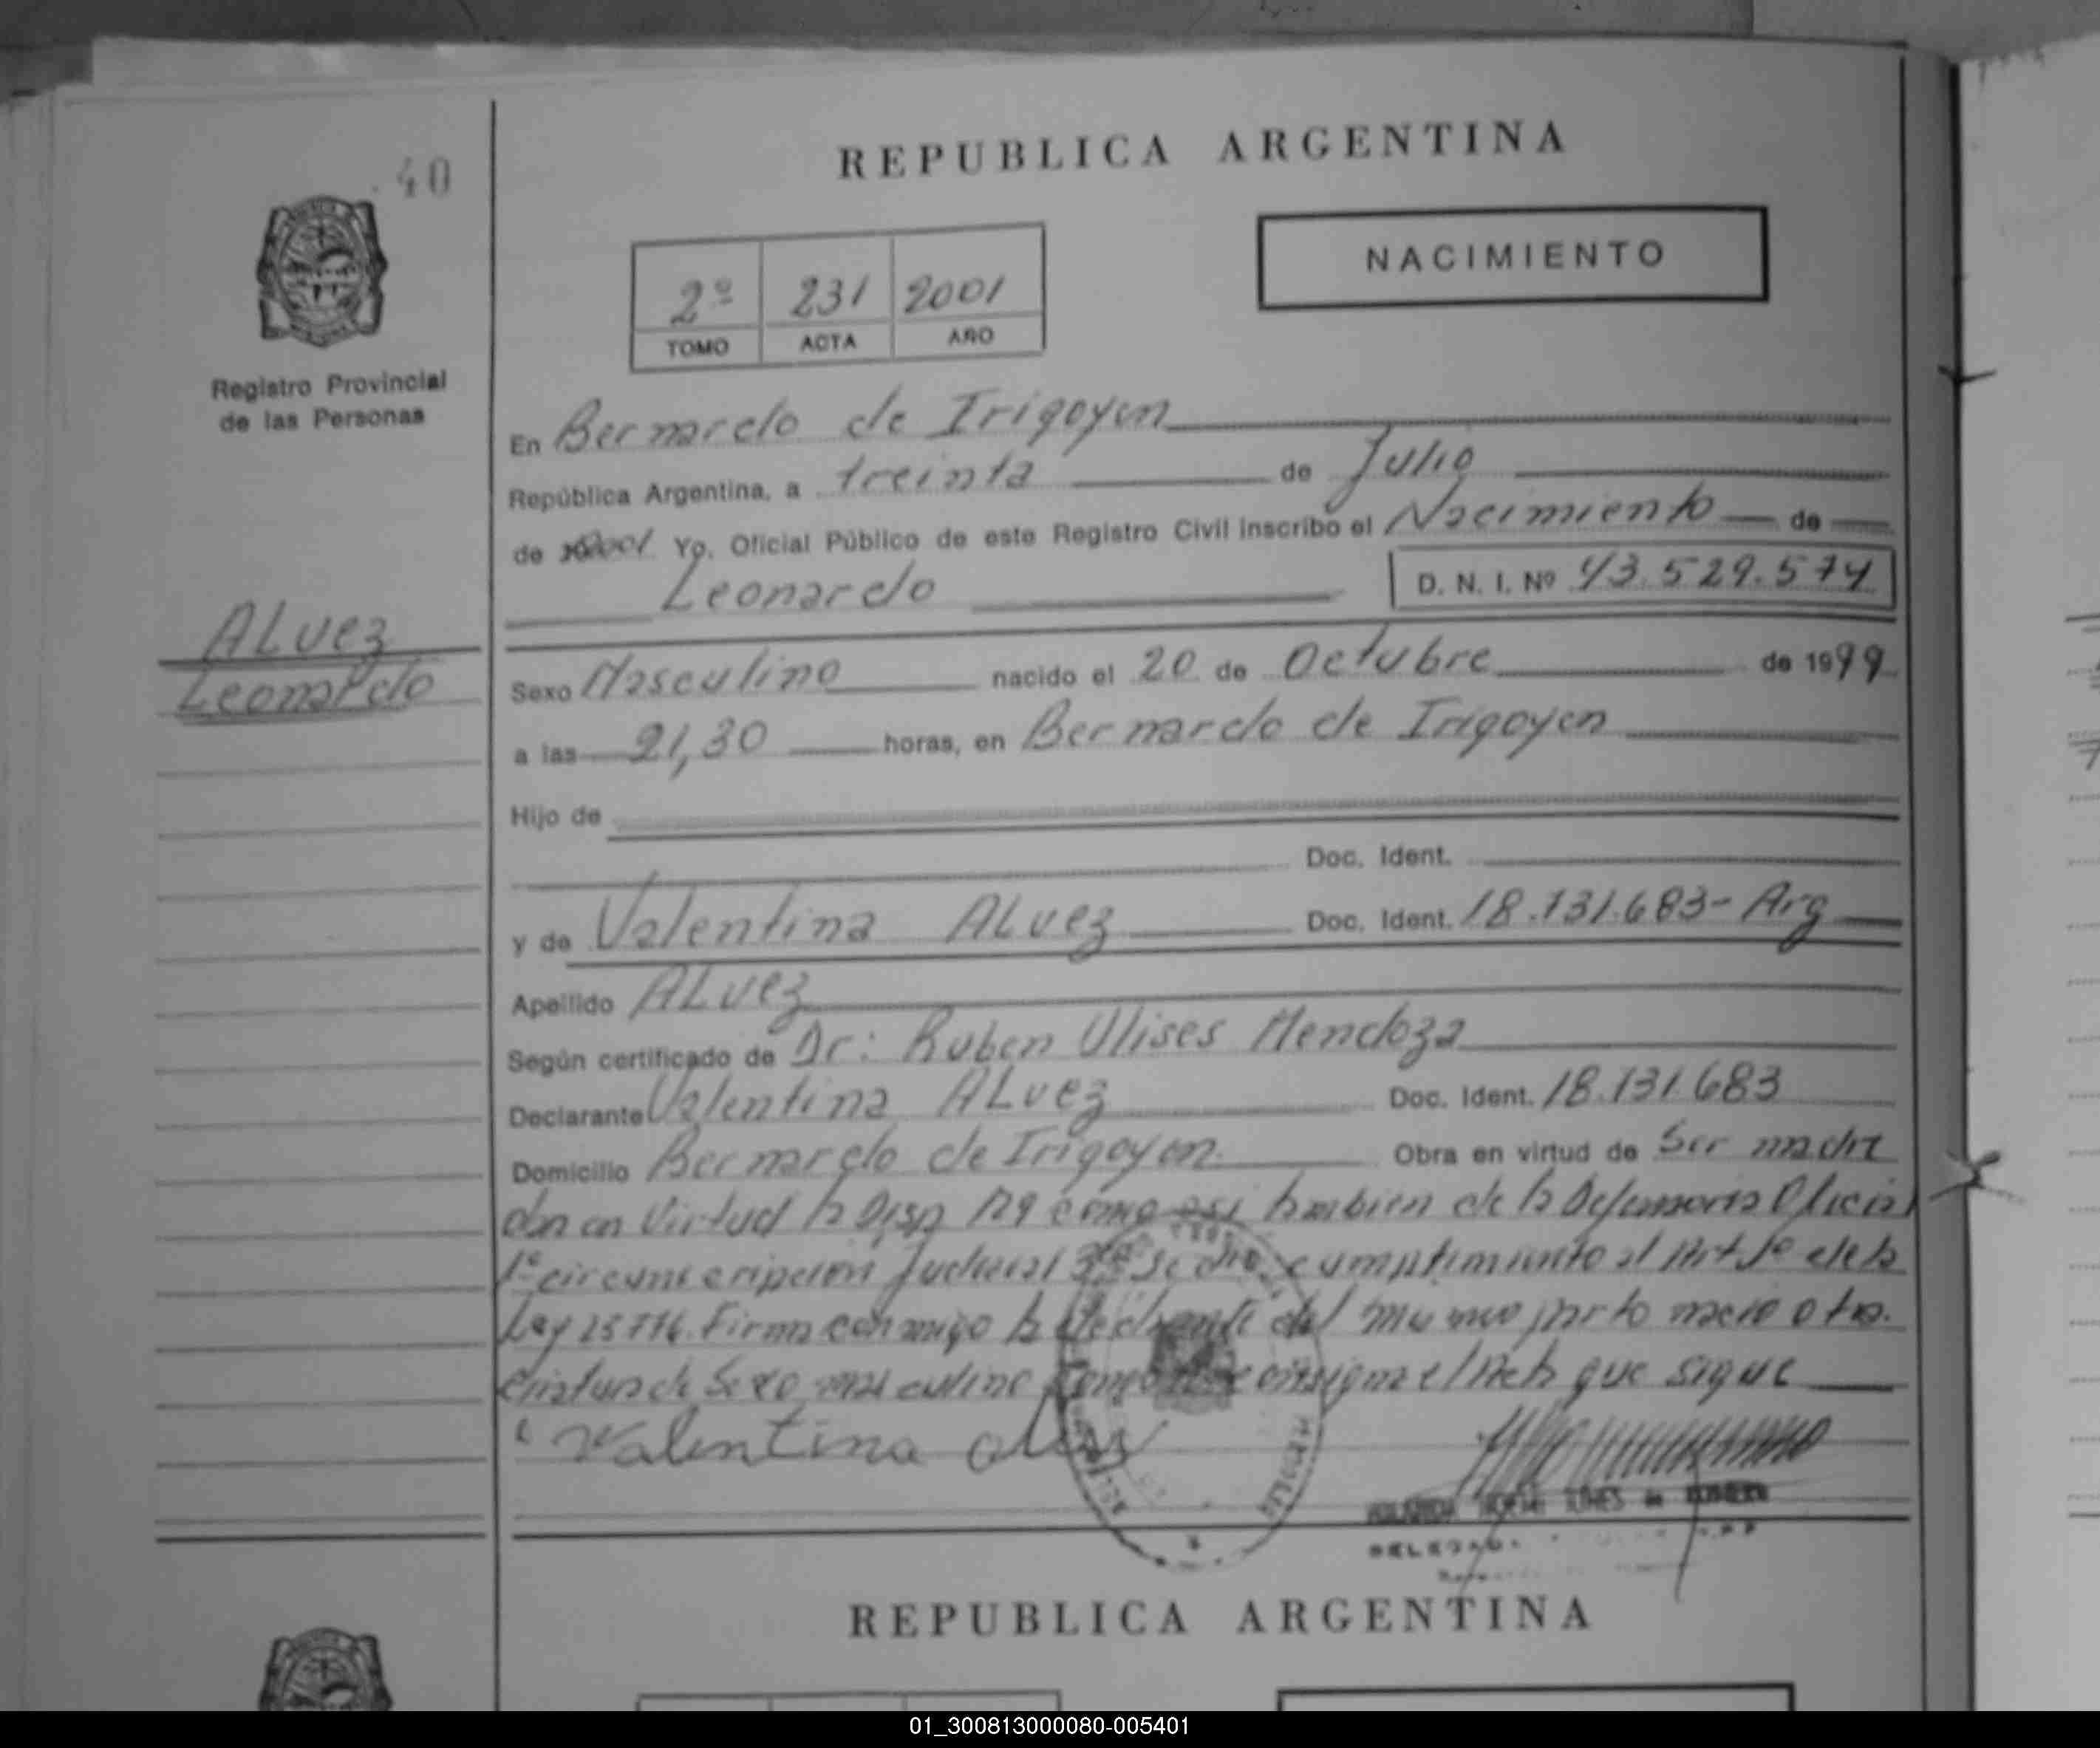 REPUBLICA ARGENTINA
40
NACIMIENTO
2º 231 2001
TOMO ACTA AÑO
Registro Provincial
de las Personas
En Bernardo de Irigoyen
República Argentina, a treinta de Julio
de 2001 Yo, Oficial Público de este Registro Civil inscribo el Nacimiento de
Leonardo D. N. I. Nº 43.529.574
ALvez
Leonardo
Sexo Masculino nacido el 20 de Octubre de 1999
a las 21,30 horas, en Bernardo de Irigoyen
Hijo de
Doc. Ident.
y de Valentina ALvez Doc. Ident. 18.131.683- Arg
Apellido ALvez
Según certificado de Dr: Ruben Ulises Mendoza
Declarante Valentina ALvez Doc. Ident. 18.131.683
Domicilio Bernardo de Irigoyen Obra en virtud de Ser madre
en Virtud Disp como asi tambien de la Defensoria Oficial
1º circunscripcion Judicial cumplimiento al Art de la
Ley Firma conmigo la declarante del mismo parto nacio otra
criatura de Sexo masculino consigna el Acta que sigue
Valentina alvez
REPUBLICA ARGENTINA
01_300813000080-005401